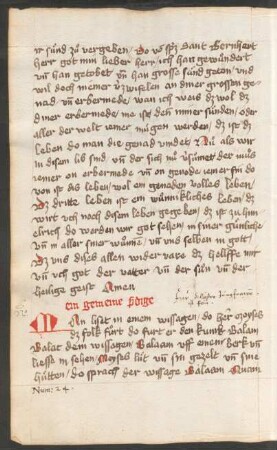 ir sünd zu vergeben / Do vō spͥcht Sant Bernhert
herr got min lieber herr / ich han gewündert
vn̄ han getobet vn̄ han grosse sünd getan / vnd
wil doch niemer v̓zwiflen an diner grossen ge-
nad vn̄ erbermede / wan ich wais dz wol dz
diner erbermede me ist den min̄er sünden / oder
aller der welt iemer mügen werden / dz ist dz
leben do man die genad vindet / Nu als wir
in disem lib sind vn̄ der sich nu v̓sumet der mus
iemer on erbermede vn̄ on genode iemer sin do
von ist das leben / wol ein genaden volles leben /
Dz dritte leben ist ein wünnikliches leben / dz
wirt vch noch disem leben gegeben / dz ist zu him̄
elrich do werden wir got sehen / in siner günliche
vn̄ in aller siner wünne / vn̄ vns selben in got /
Dz vns dises allen wider vare dz helffe mir
vn̄ vch got der vatter vn̄ der sůn vn̄ der
heilige geist Amen
ein gemeine bdige
Man liset in einem wissagen / do her Moyses
dz folk furt do furt er den kunk Balam
Balac dem wissagen Balaam vff einen berk vn̄
liess in sehen / Moyses lüt vn̄ sin gezelt vn̄ sine
hütten / do sprach der wissage Balaam Quam
Num: 24.